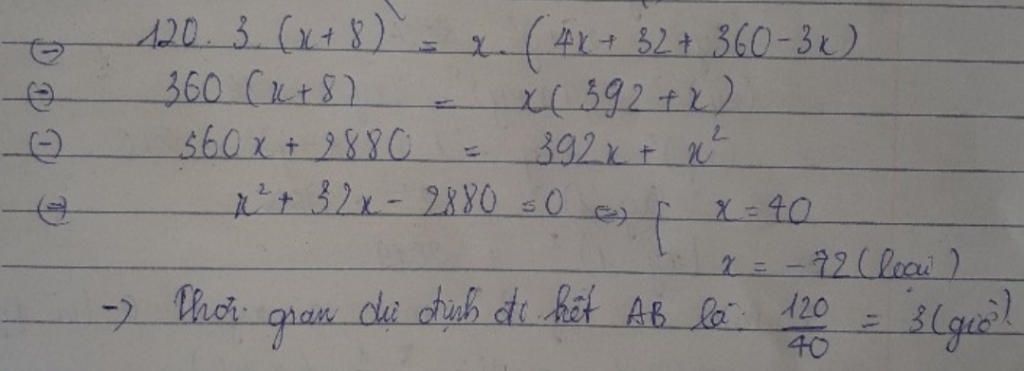 (=) 120. 3. (x+8) = x. (4x + 32 + 360 - 3x)
(=) 360 (x+8) = x( 392 + x)
(=) 360x + 2880 = 392x + x²
(=) x² + 32x - 2880 = 0 <=> [ x = 40
x = -72 (loại)
-> Thời gian dự định đi hết AB là: 120/40 = 3 (giờ).